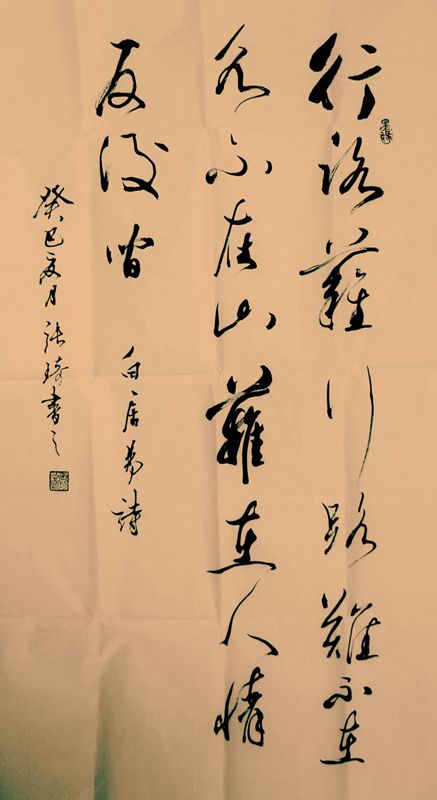 行路難行路難不在
水不在山難在人情
反復間
白居易詩
癸巳夏月張琦書之